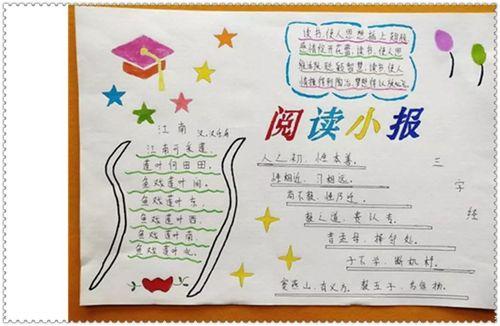 读书,使人思想插上翅膀
感情绽开花蕾。读书,使人思
维活跃,聪颖智慧,读书,使人
情操得到陶冶,梦想得以放飞。
阅读小报
江南 汉乐府
江南可采莲,
莲叶何田田,
鱼戏莲叶间。
鱼戏莲叶东,
鱼戏莲叶西,
鱼戏莲叶南,
鱼戏莲叶北。
三字经
人之初,性本善。
性相近,习相远。
苟不教,性乃迁。
教之道,贵以专。
昔孟母,择邻处。
子不学,断机杼。
窦燕山,有义方。教五子,名俱扬。